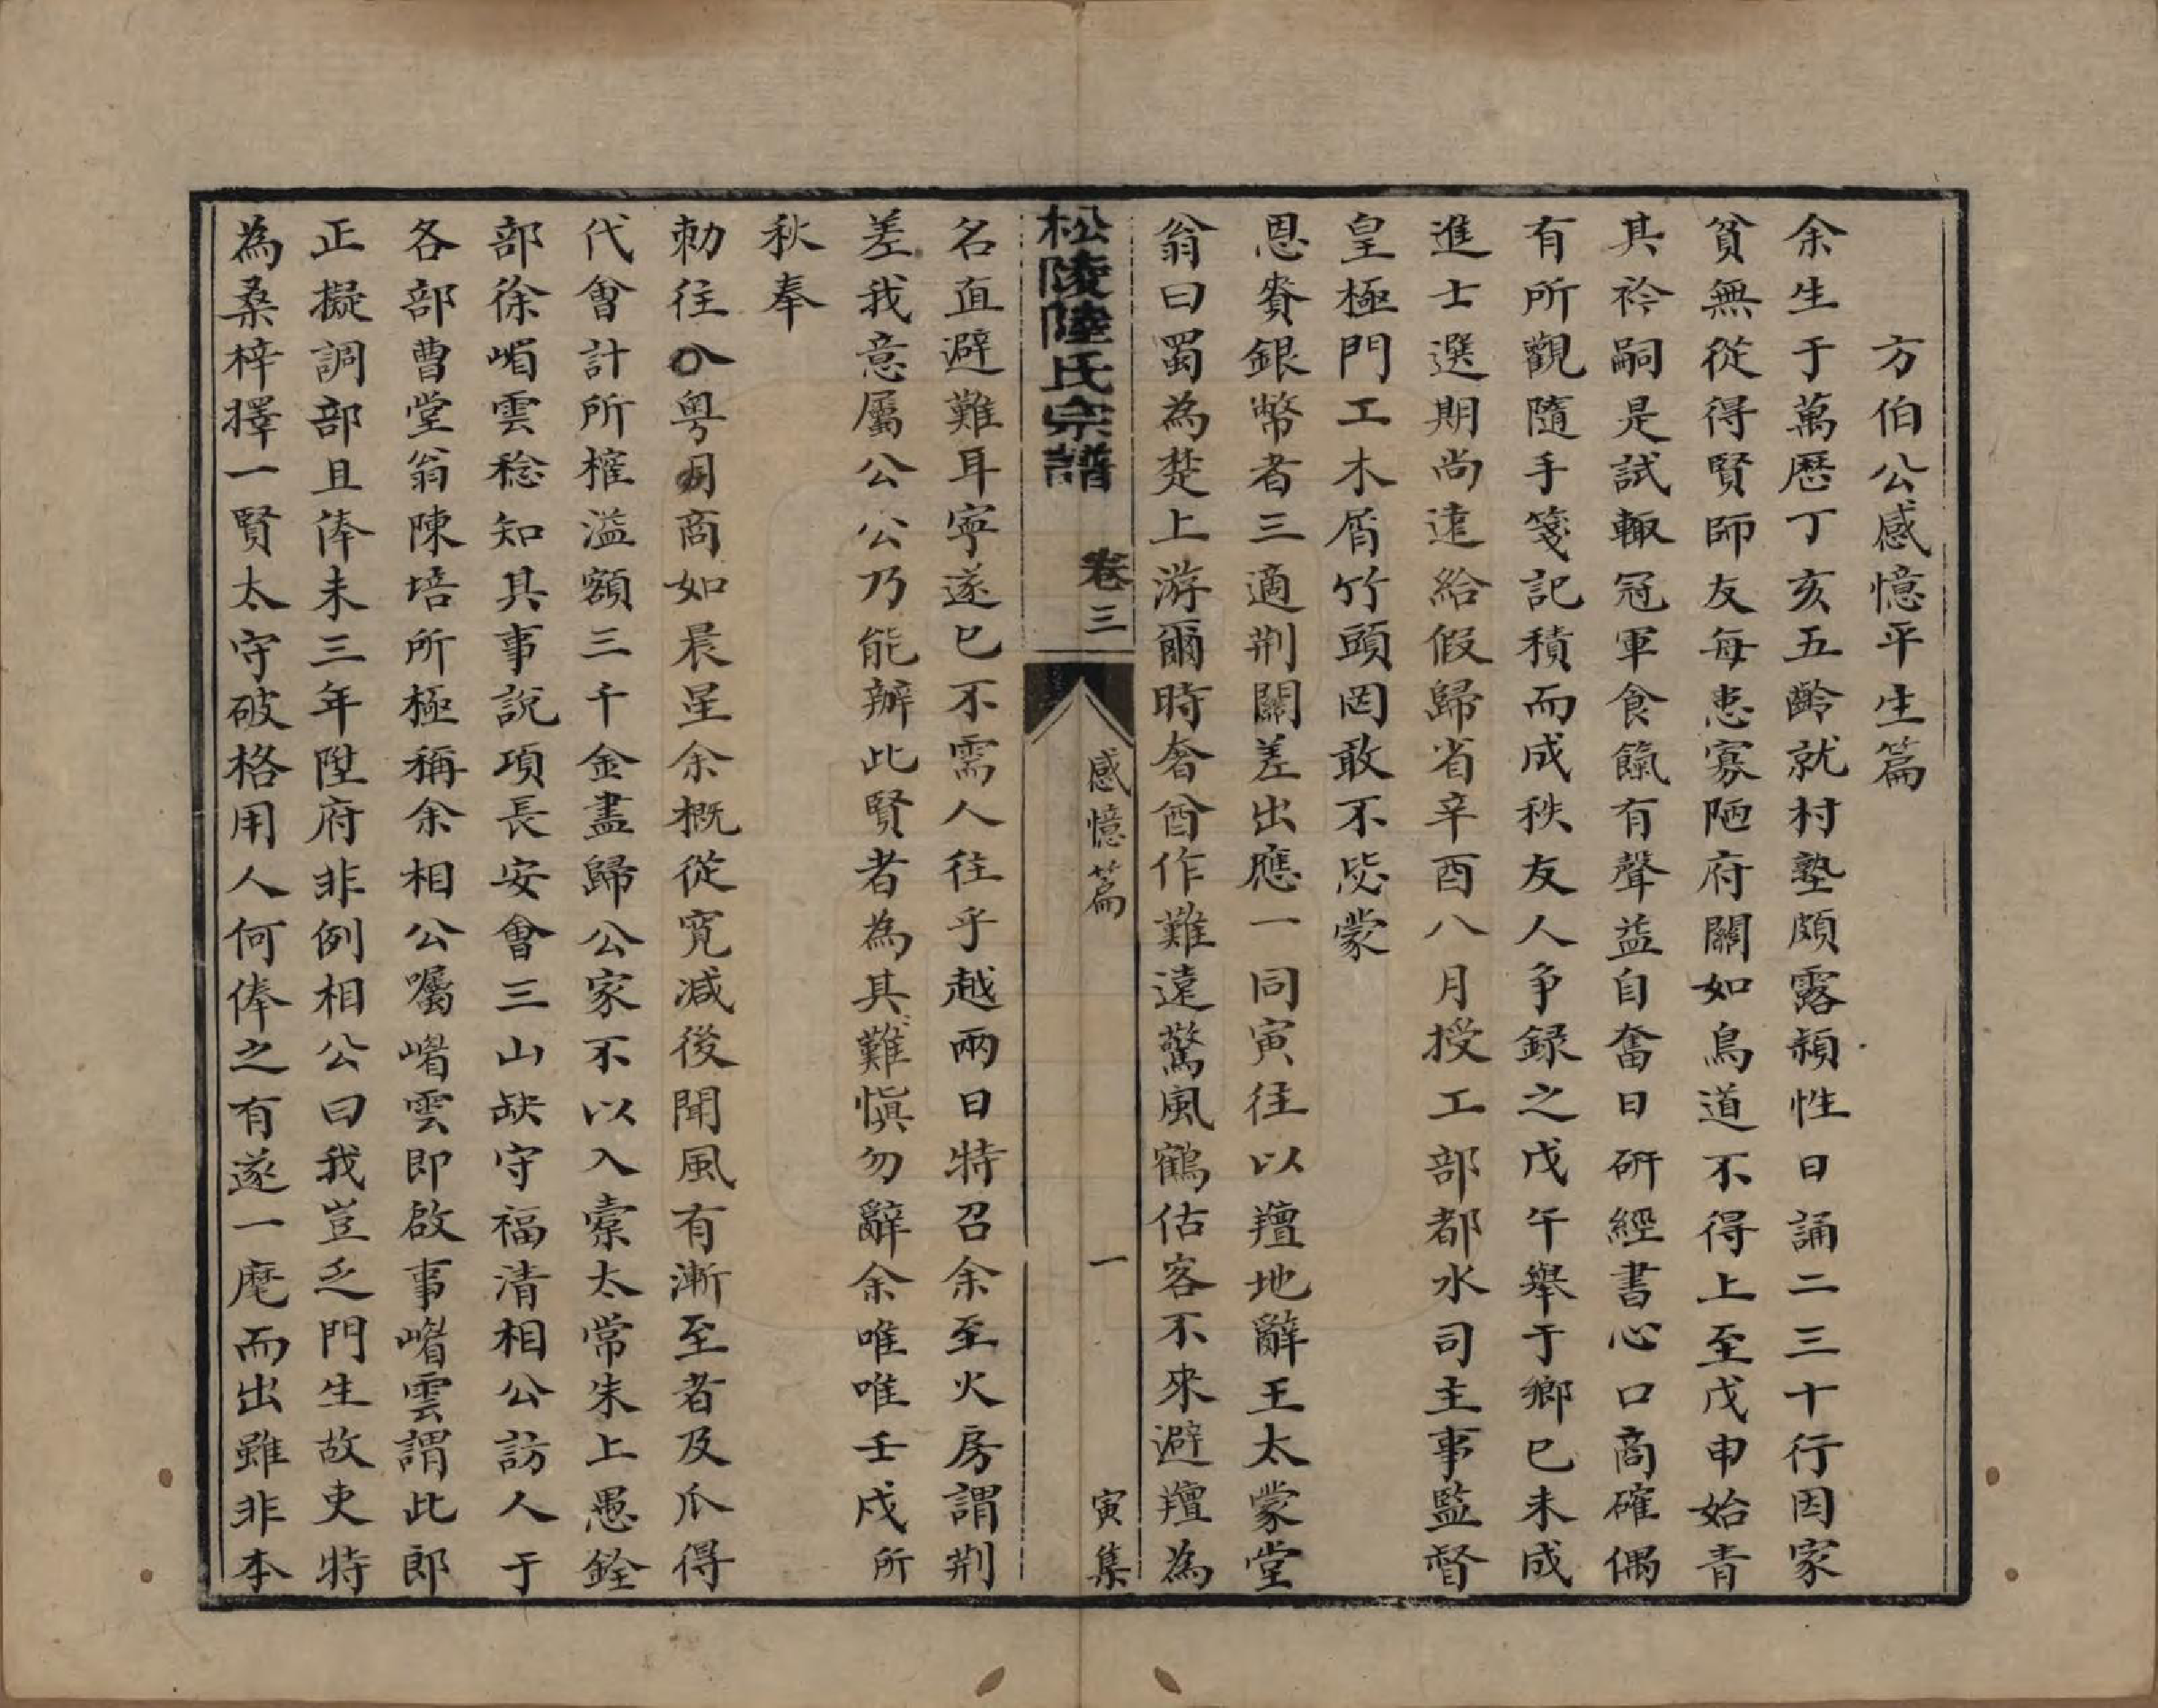 方伯公感憶平生篇
余生于萬歷丁亥五齡就村塾頗露穎性日誦二三十行因家
貧無從得賢師友每患寡陋府關如鳥道不得上至戊申始青
其衿嗣是試輙冠軍食餼有聲益自奮日研經書心口商確偶
有所觀隨手箋記積而成秩友人争録之戊午舉于鄉已未成
進士選期尚遠給假歸省辛酉八月授工部都水司主事監督
皇極門工木屑竹頭罔敢不毖蒙
恩賚銀幣者三適荆關差出應一同寅往以羶地辭王太蒙堂
翁曰蜀為楚上游爾時奢酋作難遠驚風鶴估客不來避羶為
松陵陸氏宗譜 卷三 感憶篇 一 寅集
名直避難耳寧遂已不需人往乎越兩日特召余至火房謂荆
差我意屬公公乃能辦此賢者為其難慎勿辭余唯唯壬戌所
秋奉
勅往八粤月商如晨星余概從寛减後聞風有漸至者及瓜得
代會計所榷溢額三千金盡歸公家不以入橐太常朱上愚銓
部徐嵋雲稔知其事說項長安會三山缺守福清相公訪人于
各部曹堂翁陳培所極稱余相公囑嵋雲即啟事嵋雲謂此郎
正擬調部且俸未三年陞府非例相公曰我豈乏門生故吏特
為桑梓擇一賢太守破格用人何俸之有遂一麾而出雖非本